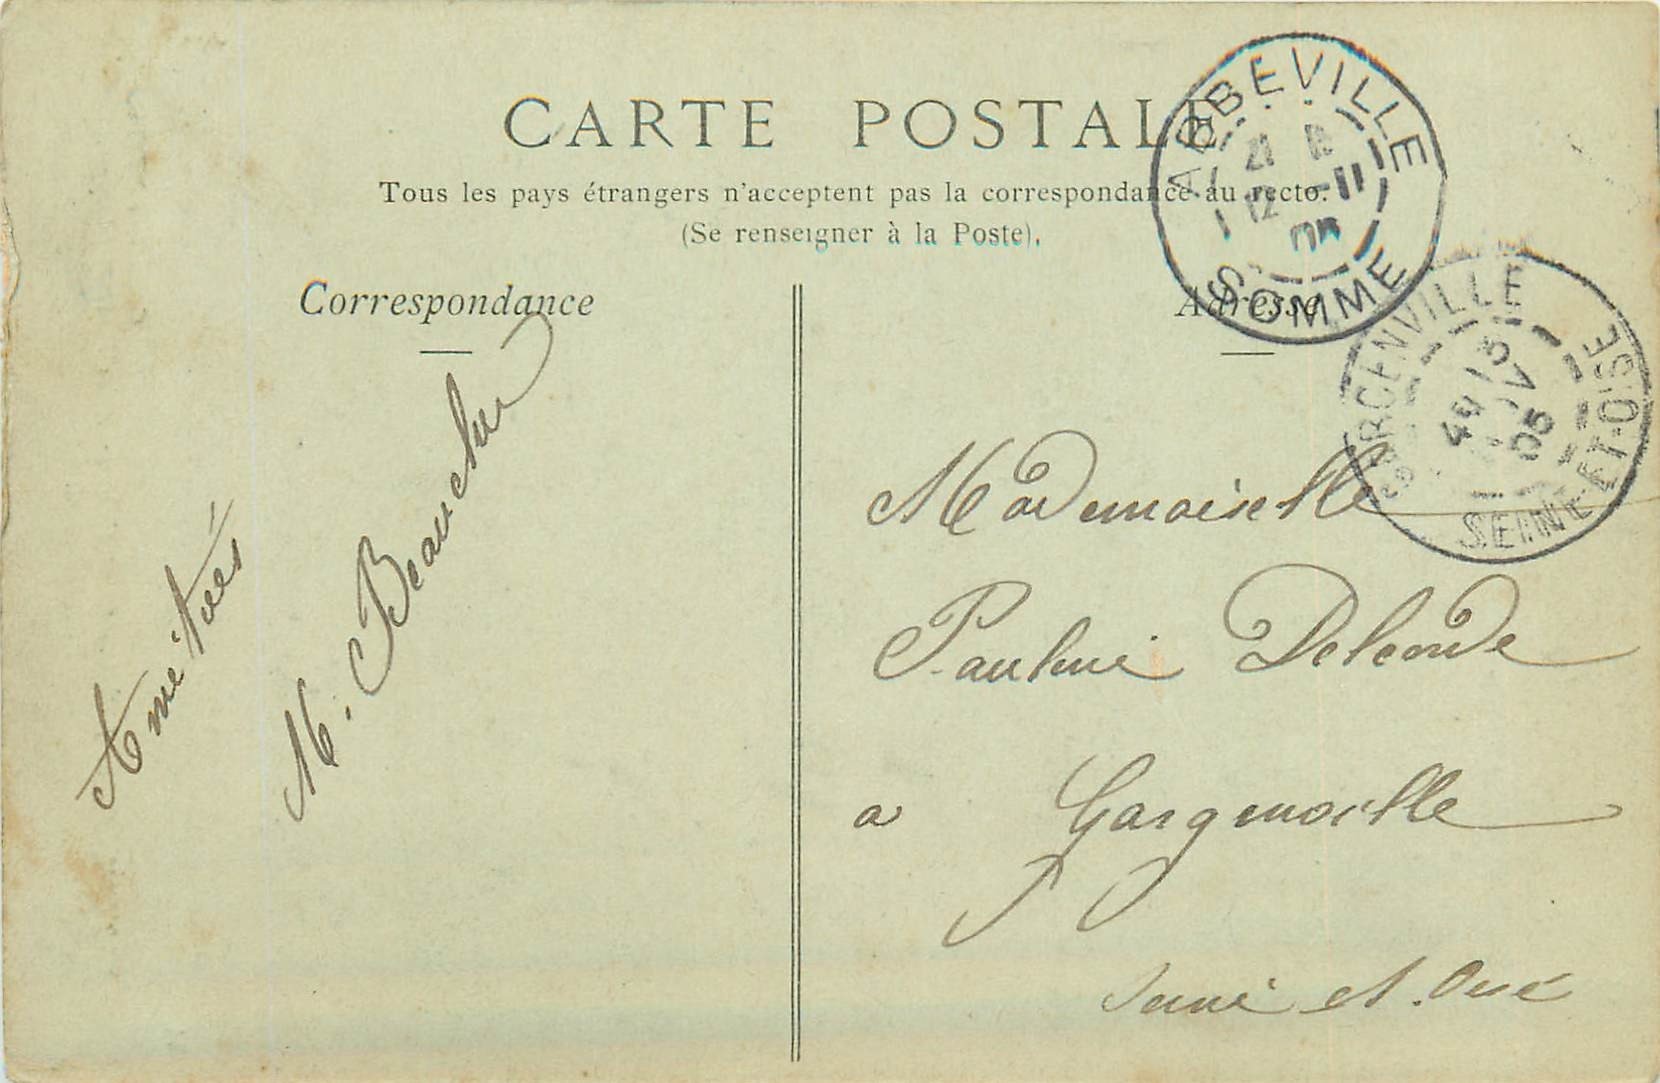 CARTE POSTALE
Tous les pays étrangers n'acceptent pas la correspondance au recto.
(Se renseigner à la Poste).
Correspondance
Adresse
ABBEVILLE
12 -11
SOMME
GARGENVILLE
05
SEINE-ET-OISE
Amitiés
M. Beauchu
Mademoiselle
Pauline
a Gargenville
Seine et Oise